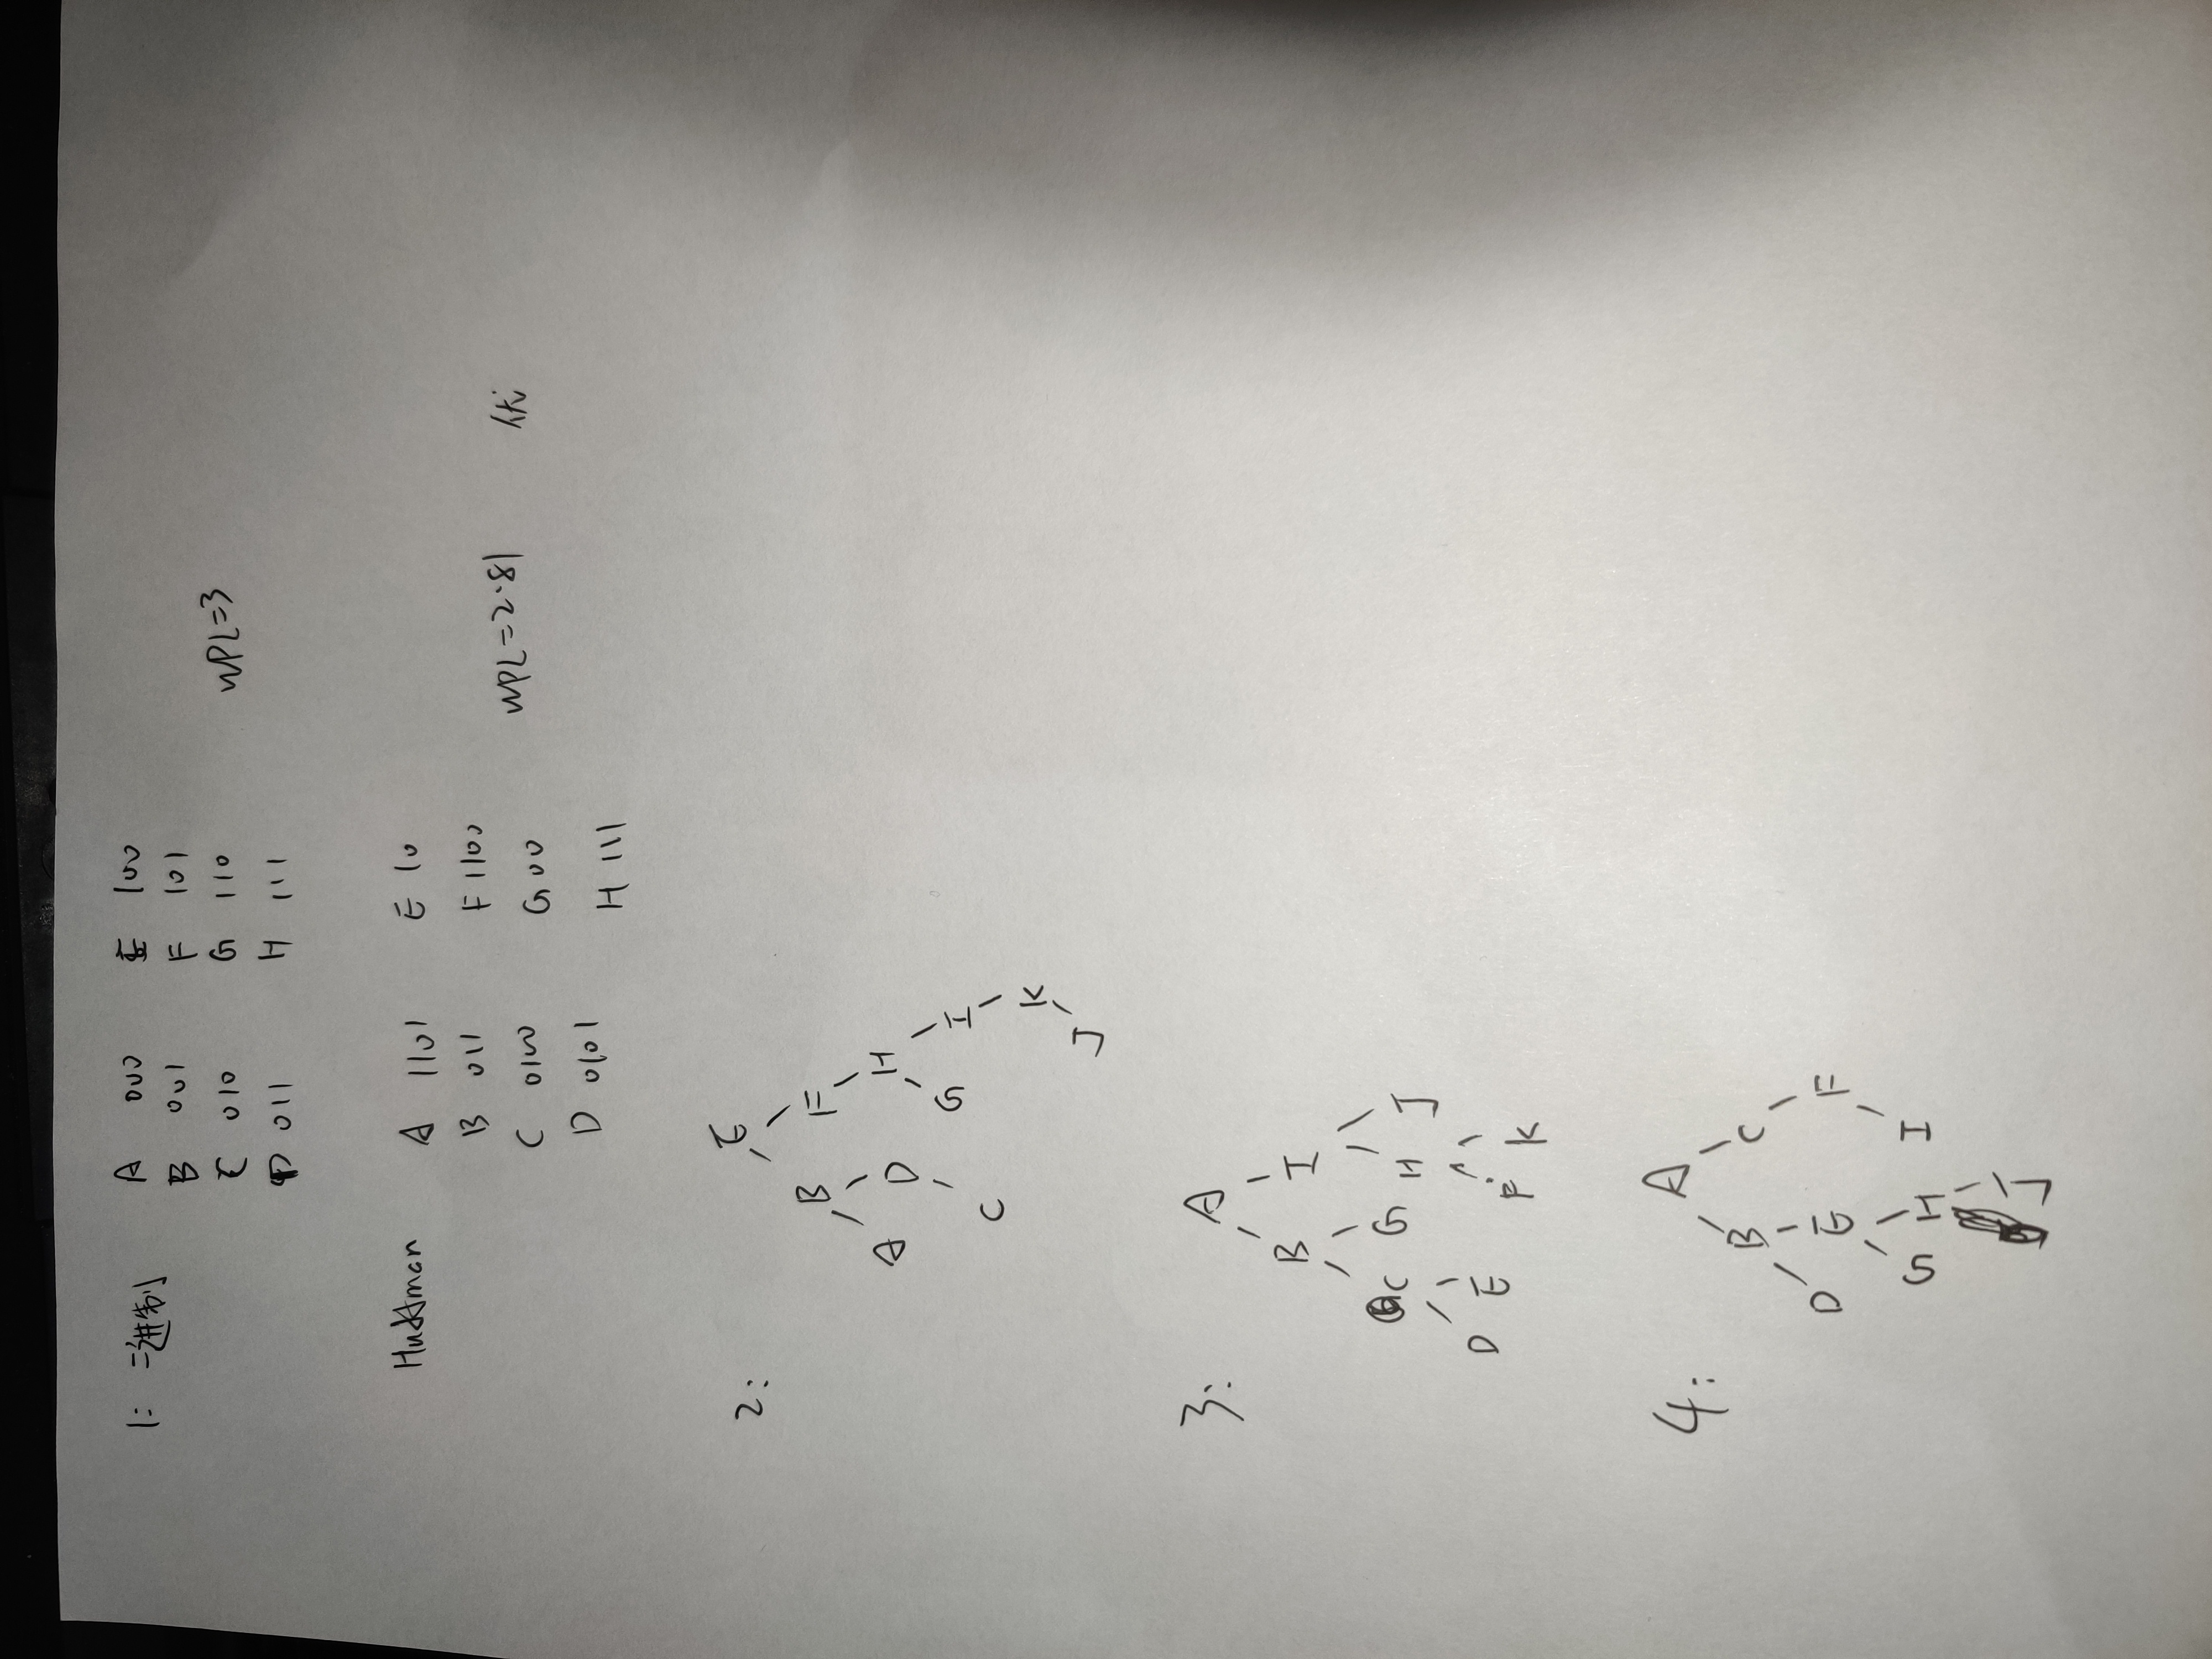 1: 二进制 A 000 E 100
B 001 F 101
C 010 G 110 WPL=3
D 011 H 111
Huffman A 1101 E 10
B 011 F 1100
C 0100 G 00 WPL=2.81 优
D 0101 H 111
2: E
B F
A D H
C G I
K
J
3: A
B I
C G H J
D E F K
4: A
B C
D E F
G H I
J